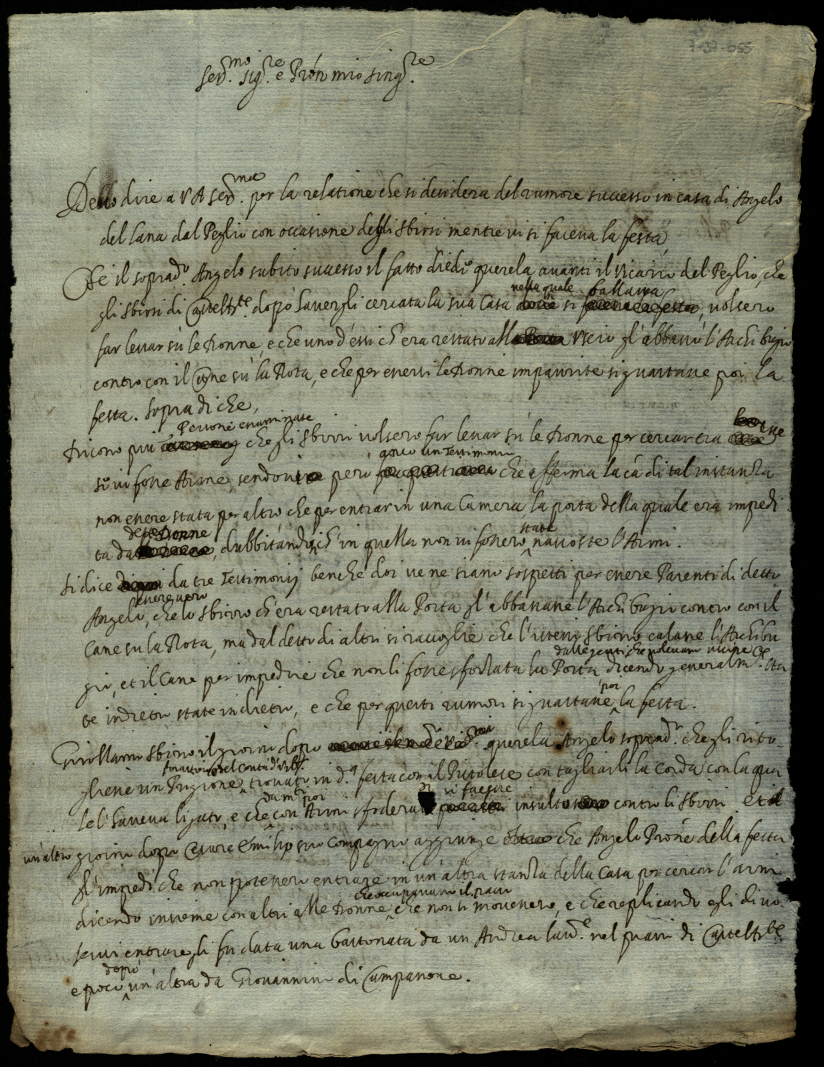 7-27-655
Ser.mo Sig.re e Pròn mio Sing.re
Devo dire a V A Ser.ma per la relatione che si desidera del rumore successo in casa di Angelo
del Lana dal Peglio con occasione degli sbirri mentre vi si faceva la festa
Che il soprad.o Angelo subito successo il fatto diede querela avanti il Vicario del Peglio, che
gli sbirri di doppò havergli cercata la sua casa nella quale si ballava, volsero
far levar sù le Donne, e che uno d'essi ch'era restato all uscio gl'abbassò l'Archibugio
contro con il Cane sù la Rota, e che per essersi le Donne impaurite si guastasse poi la
festa. Sopra di che,
Dicono più Persone esaminate che gli sbirri volsero far levar sù le Donne per cercar tra esse
se vi fosse Arme, però un Testimonio che afferma la cà di tal instanza
non essere stata per altro che per entrar in una Camera la porta della quale era impedi
ta da dette Donne, dubbitando, ch'in quella non vi fossero state nascoste l'Armi.
Si dice da tre Testimonij benche doi ve ne siano sospetti per essere Parenti di detto
Angelo, che lo sbirro ch'era restato alla Porta gl'abbassasse l'Archibugio contro con il
Cane su la Rota, ma dal detto di altri si raccoglie che l'istesso sbirro calasse l'Archibu
gio, et il Cane per impedire che non li fosse sforzata la Porta dalle genti che volevano uscire dicendo generalm.e sta
te indietro state indietro, e che per questi rumori si guastasse poi la festa.
Girollamo sbirro il giorno dopo querela Angelo soprad.o che gli rito
gliesse un Prigione trovato in d.a festa con il Pistolese con tagliarli la corda con la qua
le l'haveva ligato, e che con Armi sfoderate vi facesse insulto contro li sbirri et il
un'altro giorno dopo suo Compagno aggiunge che Angelo Prone della festa
gl'impedì che non potessero entrare in un'altra stanza della Casa per cercar l'armi
dicendo insieme con altri alle Donne che occupavano il passo che non si movessero, e che replicando egli di vo
lervi entrare gli fu data una bastonata da un Andrea nel piano di
e poco dopò un'altra da Giovannino di Campanone.